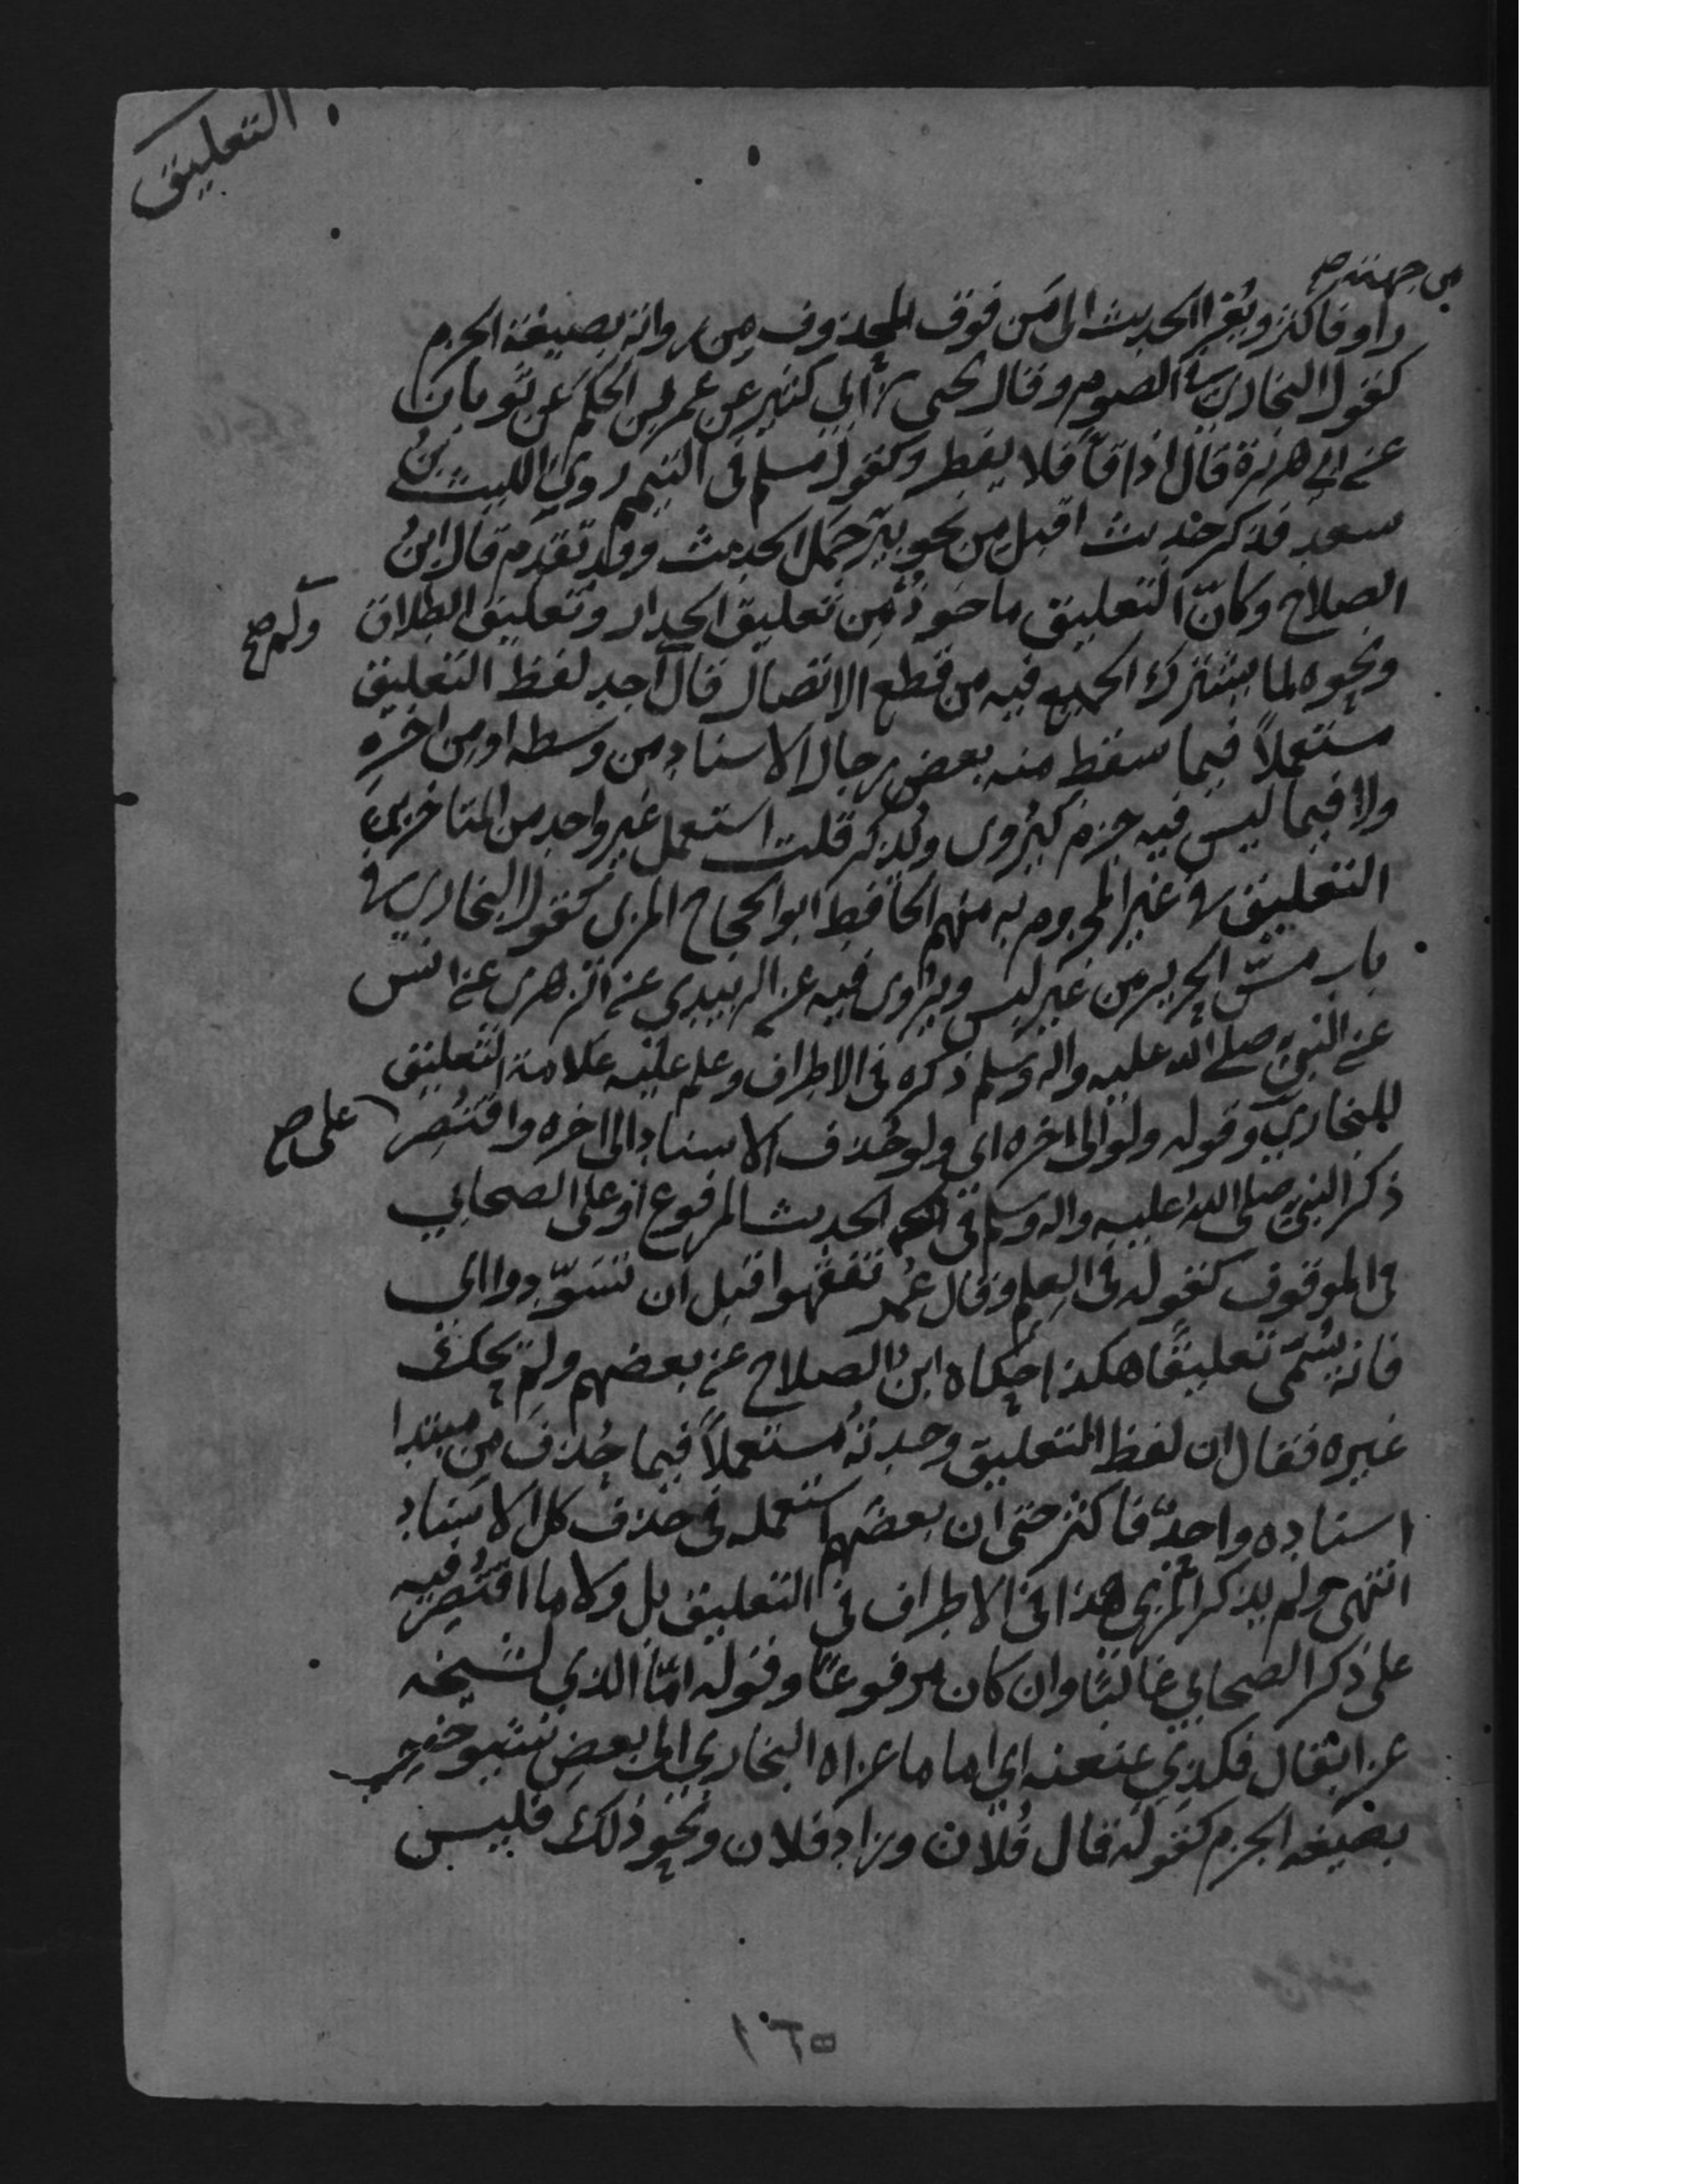 التعليق
من جهته صح
راو فاكثر ويُعزا الحديث الى مَن فوق المحذوف مِن رواته بصيغة الجزم
كقول البخاري في الصوم وقال يحيى بن أبي كثير عن عمر بن الحكم عن ثوبان
عن ابي هريرة قال اذا قاَ فلا يفطر وكقول مسلم في التيمم روى الليث بنُ
سعدٍ فذكر حديث اقبل من نحو بئر جَمَل الحديث وقد تقدم قال ابنُ
الصلاح وكانّ التعليق ماخوذٌ من تعليق الجدار وتعليق الطلاق
ولم صح
ونحوه لما يشترك الجميع فيه من قطع الاتصال قال اجد لفظ التعليق
مستعملاً فيما سقط منه بعض رجال الاسناد من وسطه او من اخره
ولا فيما ليس فيه جزم كيُروى ويُذكر قلت استعمل غير واحد من المتاخرين
التعليق في غير المجزوم به منهم الحافظ ابو الحجاج المزي كقول البخاري في
باب مسّ الحرير من غير لبس ويروى فيه عن الزبيدي عن الزهرى عن انس
عن النبي صلى الله عليه واله وسلم ذكره في الاطراف وعلم عليه علامة التعليق
للبخاري وقوله ولو الى اخره اي ولو حُذف الاسناد الى اخره واقتُصر
على صح
ذكر النبي صلى الله عليه واله وسلم في الحديث المرفوع او على الصحابي
في الموقوف كقوله في العلم وقال عُمر تفقهوا قبل ان تسَوّدوا الي
فانه يُسمّى تعليقًا هكذا حكاه ابنُ الصلاح عن بعضهم ولم يحك
غيره فقال ان لفظ التعليق وجدتُه مستعملاً فيما حُذف من مبتدا
اسناده واحدٌ فاكثر حتى ان بعضهم استعمله في حذف كل الاسناد
انتهى ولم يذكر المزي هذا في الاطراف في التعليق بل ولا ما اقتُصِر فيه
على ذكر الصحابي غالبًا وان كان مرفوعًا وقوله امّا الذي لشيخه
عزا بقال فكذي عنعنه اي اما ما عزاه البخاري الى بعض شيوخه
بصيغه الجزم كقوله قال فُلان وزاد فلان ونحو ذلك فليس